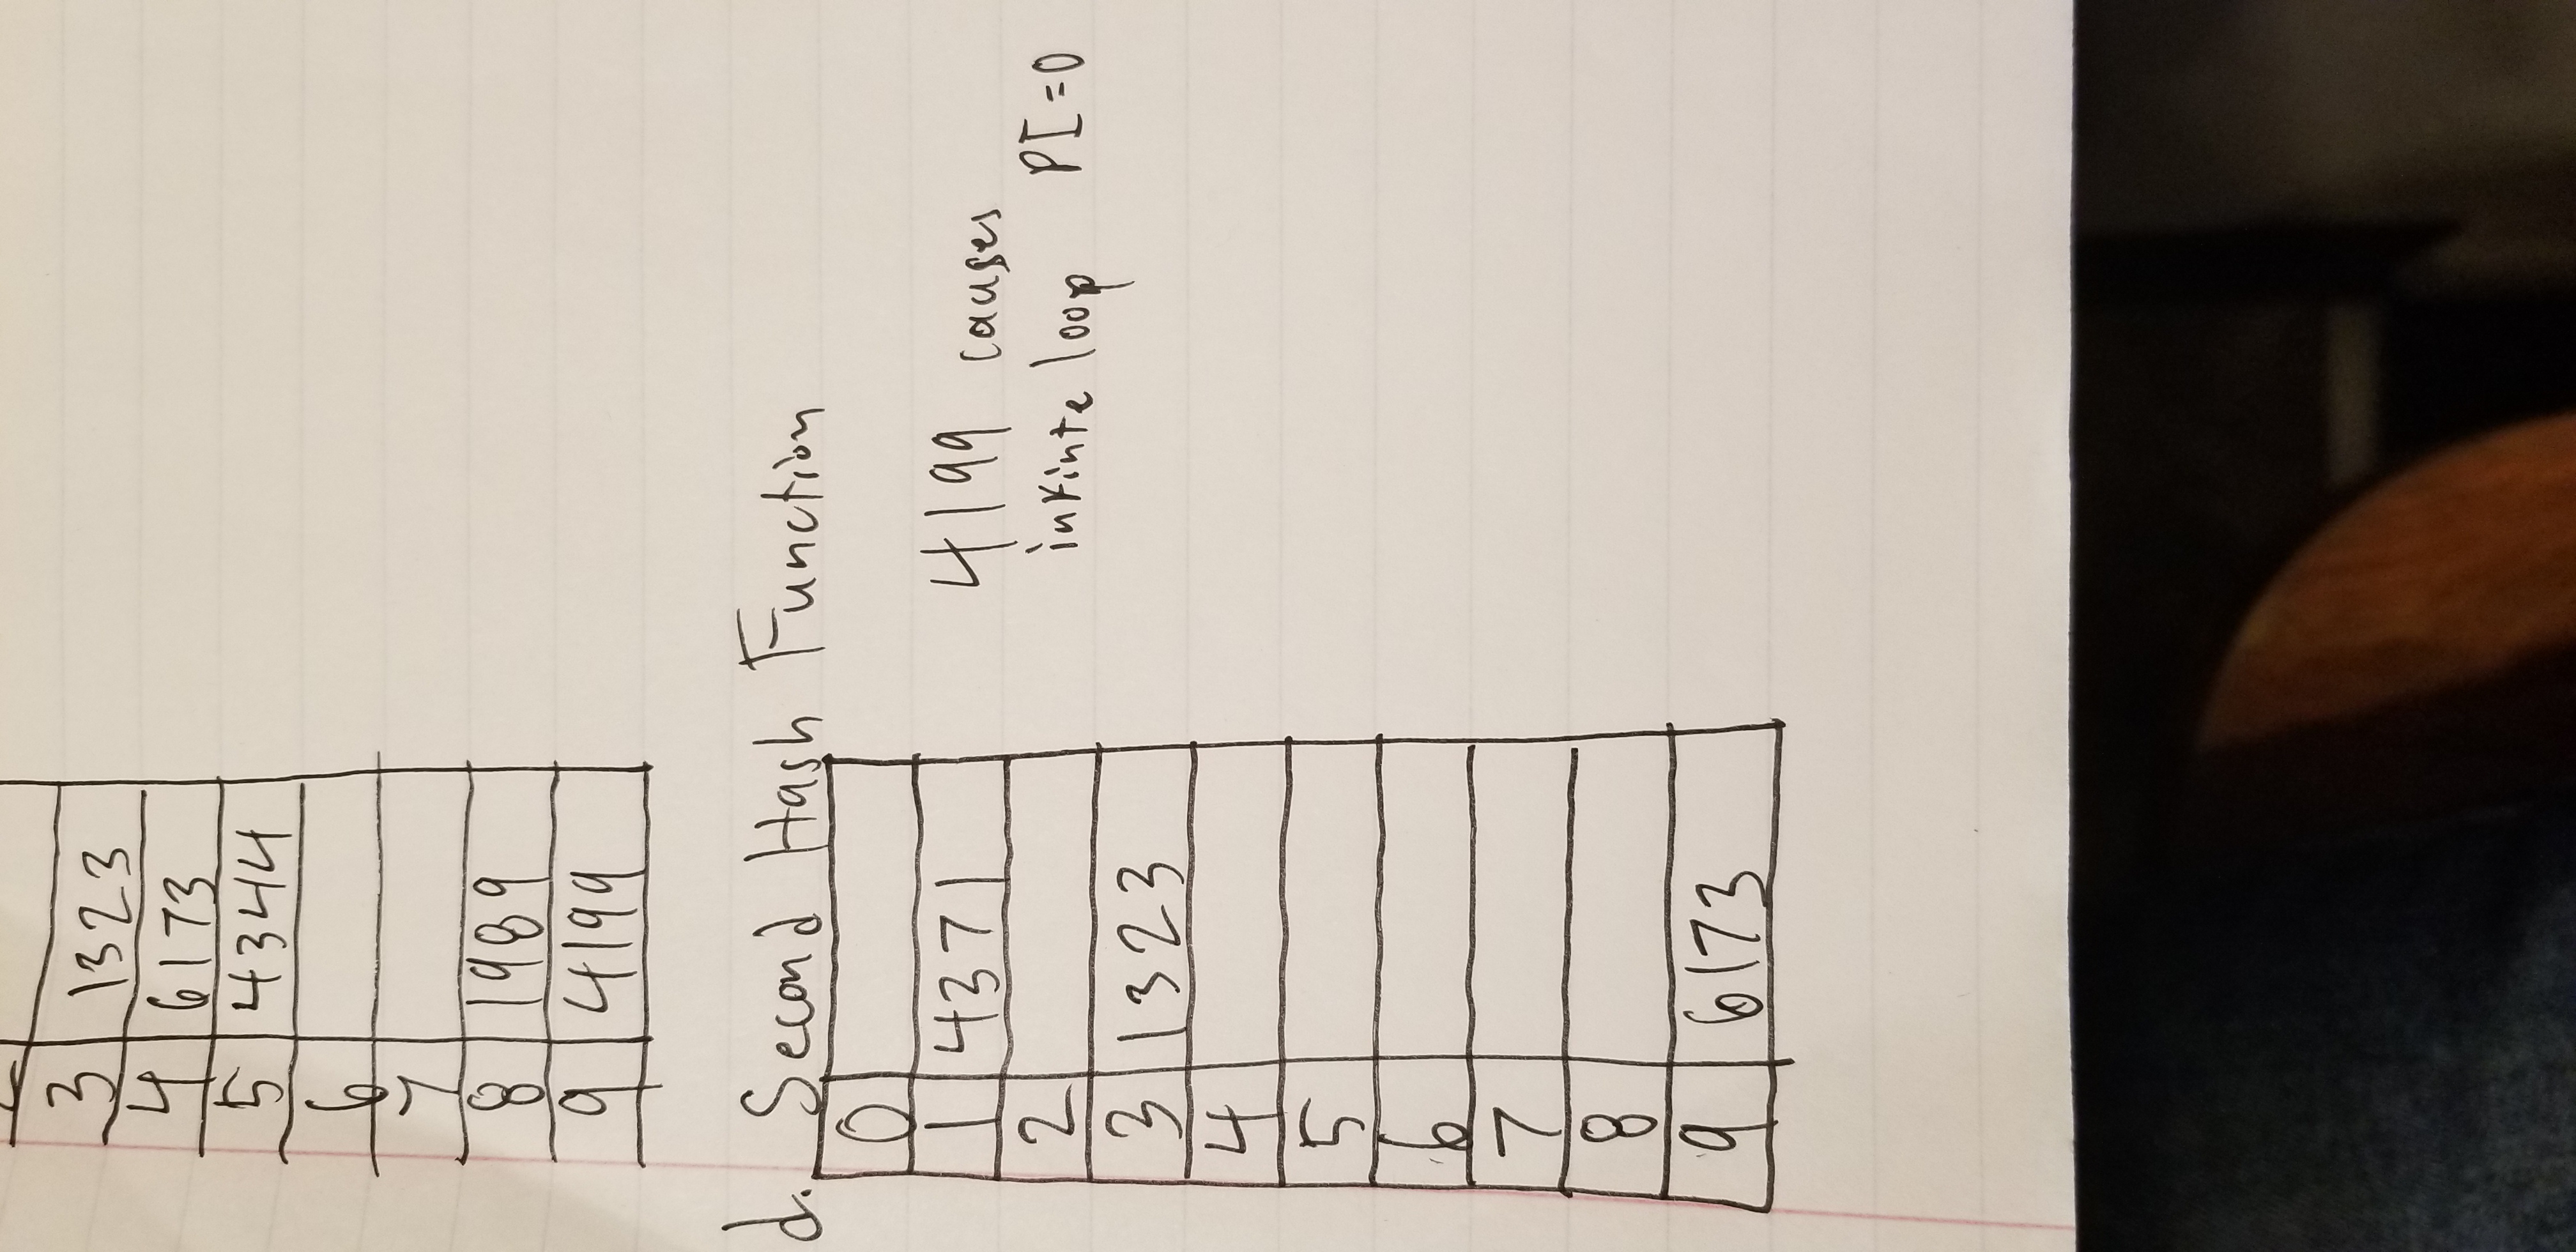 2
3 1323
4 6173
5 4344
6
7
8 1989
9 4199
d. Second Hash Function
0
1 4371
2
3 1323
4
5
6
7
8
9 6173
4199 causes
infinte loop PI=0